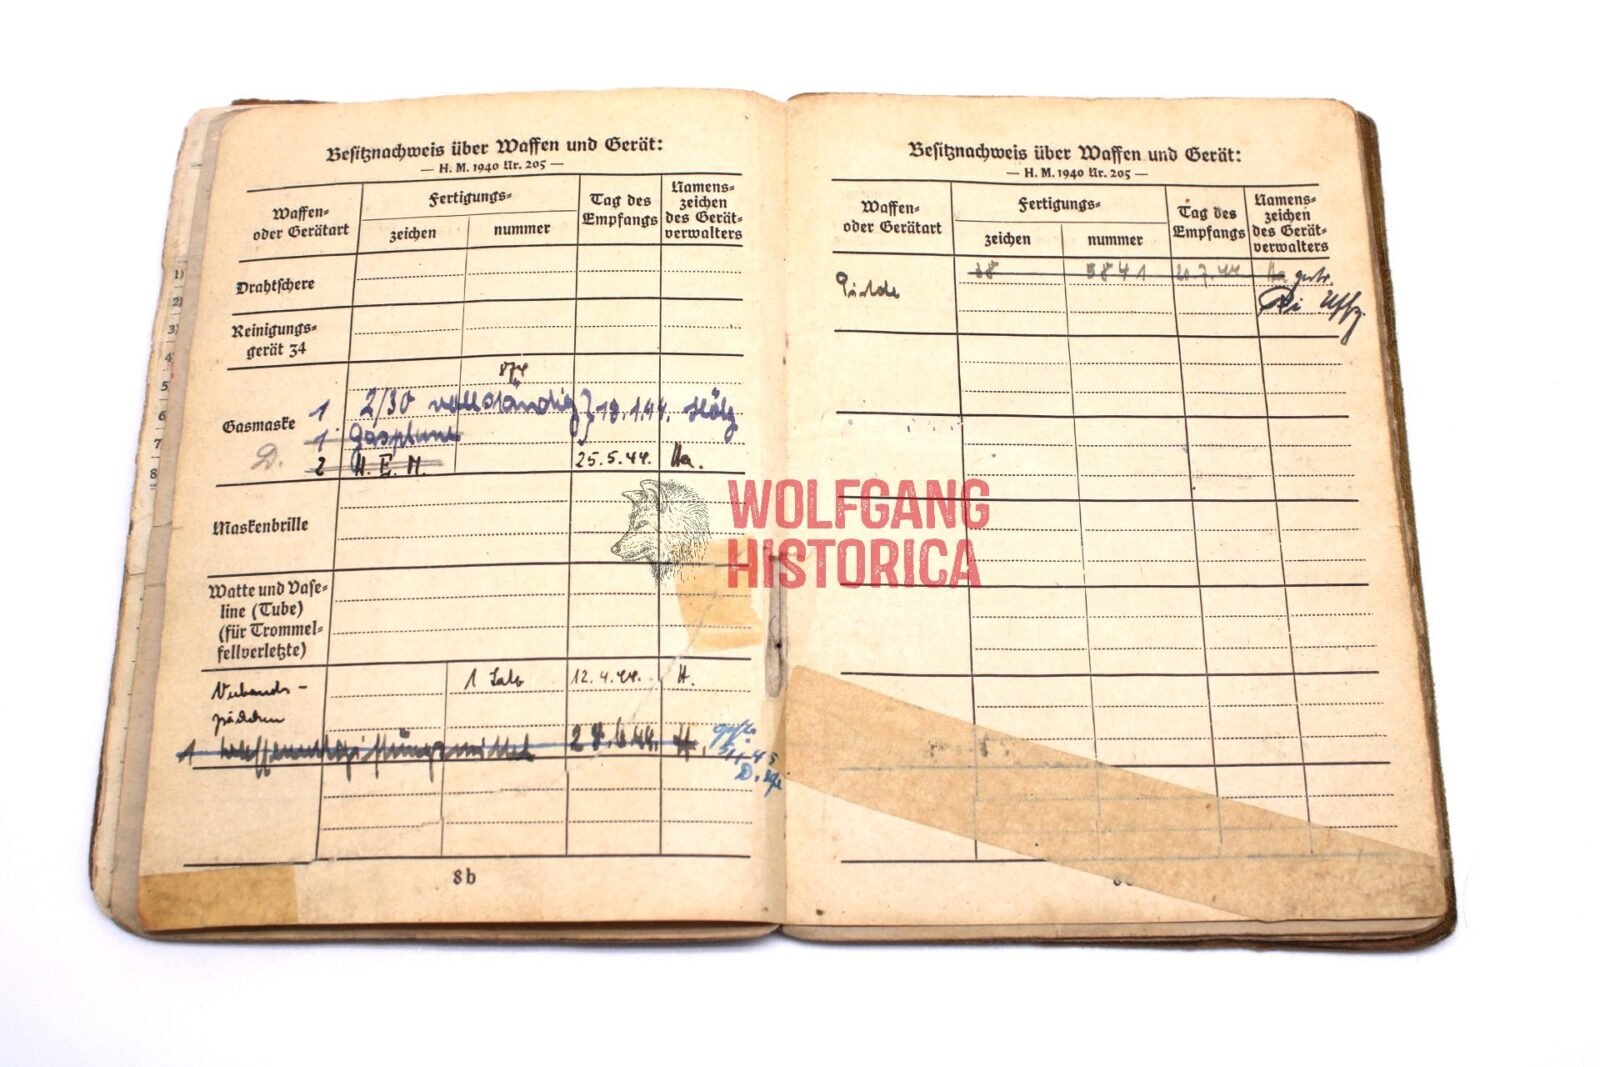 Besitznachweis über Waffen und Gerät:
— H. M. 1940 Nr. 205 —
Waffen-
oder Gerätart
Fertigungs-
zeichen
nummer
Tag des
Empfangs
Namens-
zeichen
des Gerät-
verwalters
Drahtschere
Reinigungs-
gerät 34
Gasmaske
1 2/30 vollständig } 19.1.44.
1 Gasplane
D. 2 H. E. M. 25.5.44. Ha.
Maskenbrille
Watte und Vase-
line (Tube)
(für Trommel-
fellverletzte)
Verbands-
päckchen
1 Satz 12.4.44. H.
1 Waffenentgiftungsmittel 6.44. H.
8b
Besitznachweis über Waffen und Gerät:
— H. M. 1940 Nr. 205 —
Waffen-
oder Gerätart
Fertigungs-
zeichen
nummer
Tag des
Empfangs
Namens-
zeichen
des Gerät-
verwalters
Pistole
38 3841 20.7.44 Ha
Uffz.
WOLFGANG
HISTORICA
1)
2)
3)
4
5
6
7
8